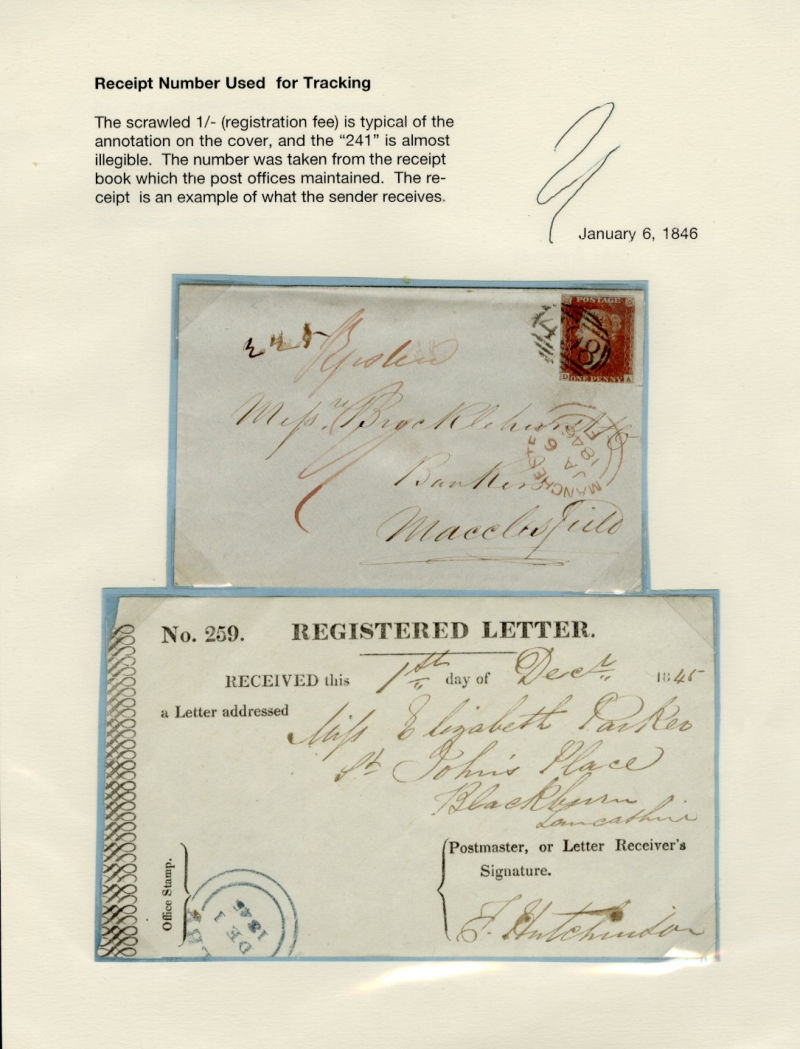 Receipt Number Used for Tracking
The scrawled 1/- (registration fee) is typical of the
annotation on the cover, and the “241” is almost
illegible. The number was taken from the receipt
book which the post offices maintained. The re-
ceipt is an example of what the sender receives.
January 6, 1846
225
POSTAGE
498
D ONE PENNY A
Messrs. Brocklehurst & Co
Bankers
Macclesfield
MANCHESTER
JA 6
1846
No. 259. REGISTERED LETTER.
RECEIVED this 1st day of Decr. 1845
a Letter addressed
Miss Elizabeth Parker
St. John's Place
Blackburn
Lancashire
Postmaster, or Letter Receiver's
Signature.
F. Hutchinson
Office Stamp.
DE 1
1845